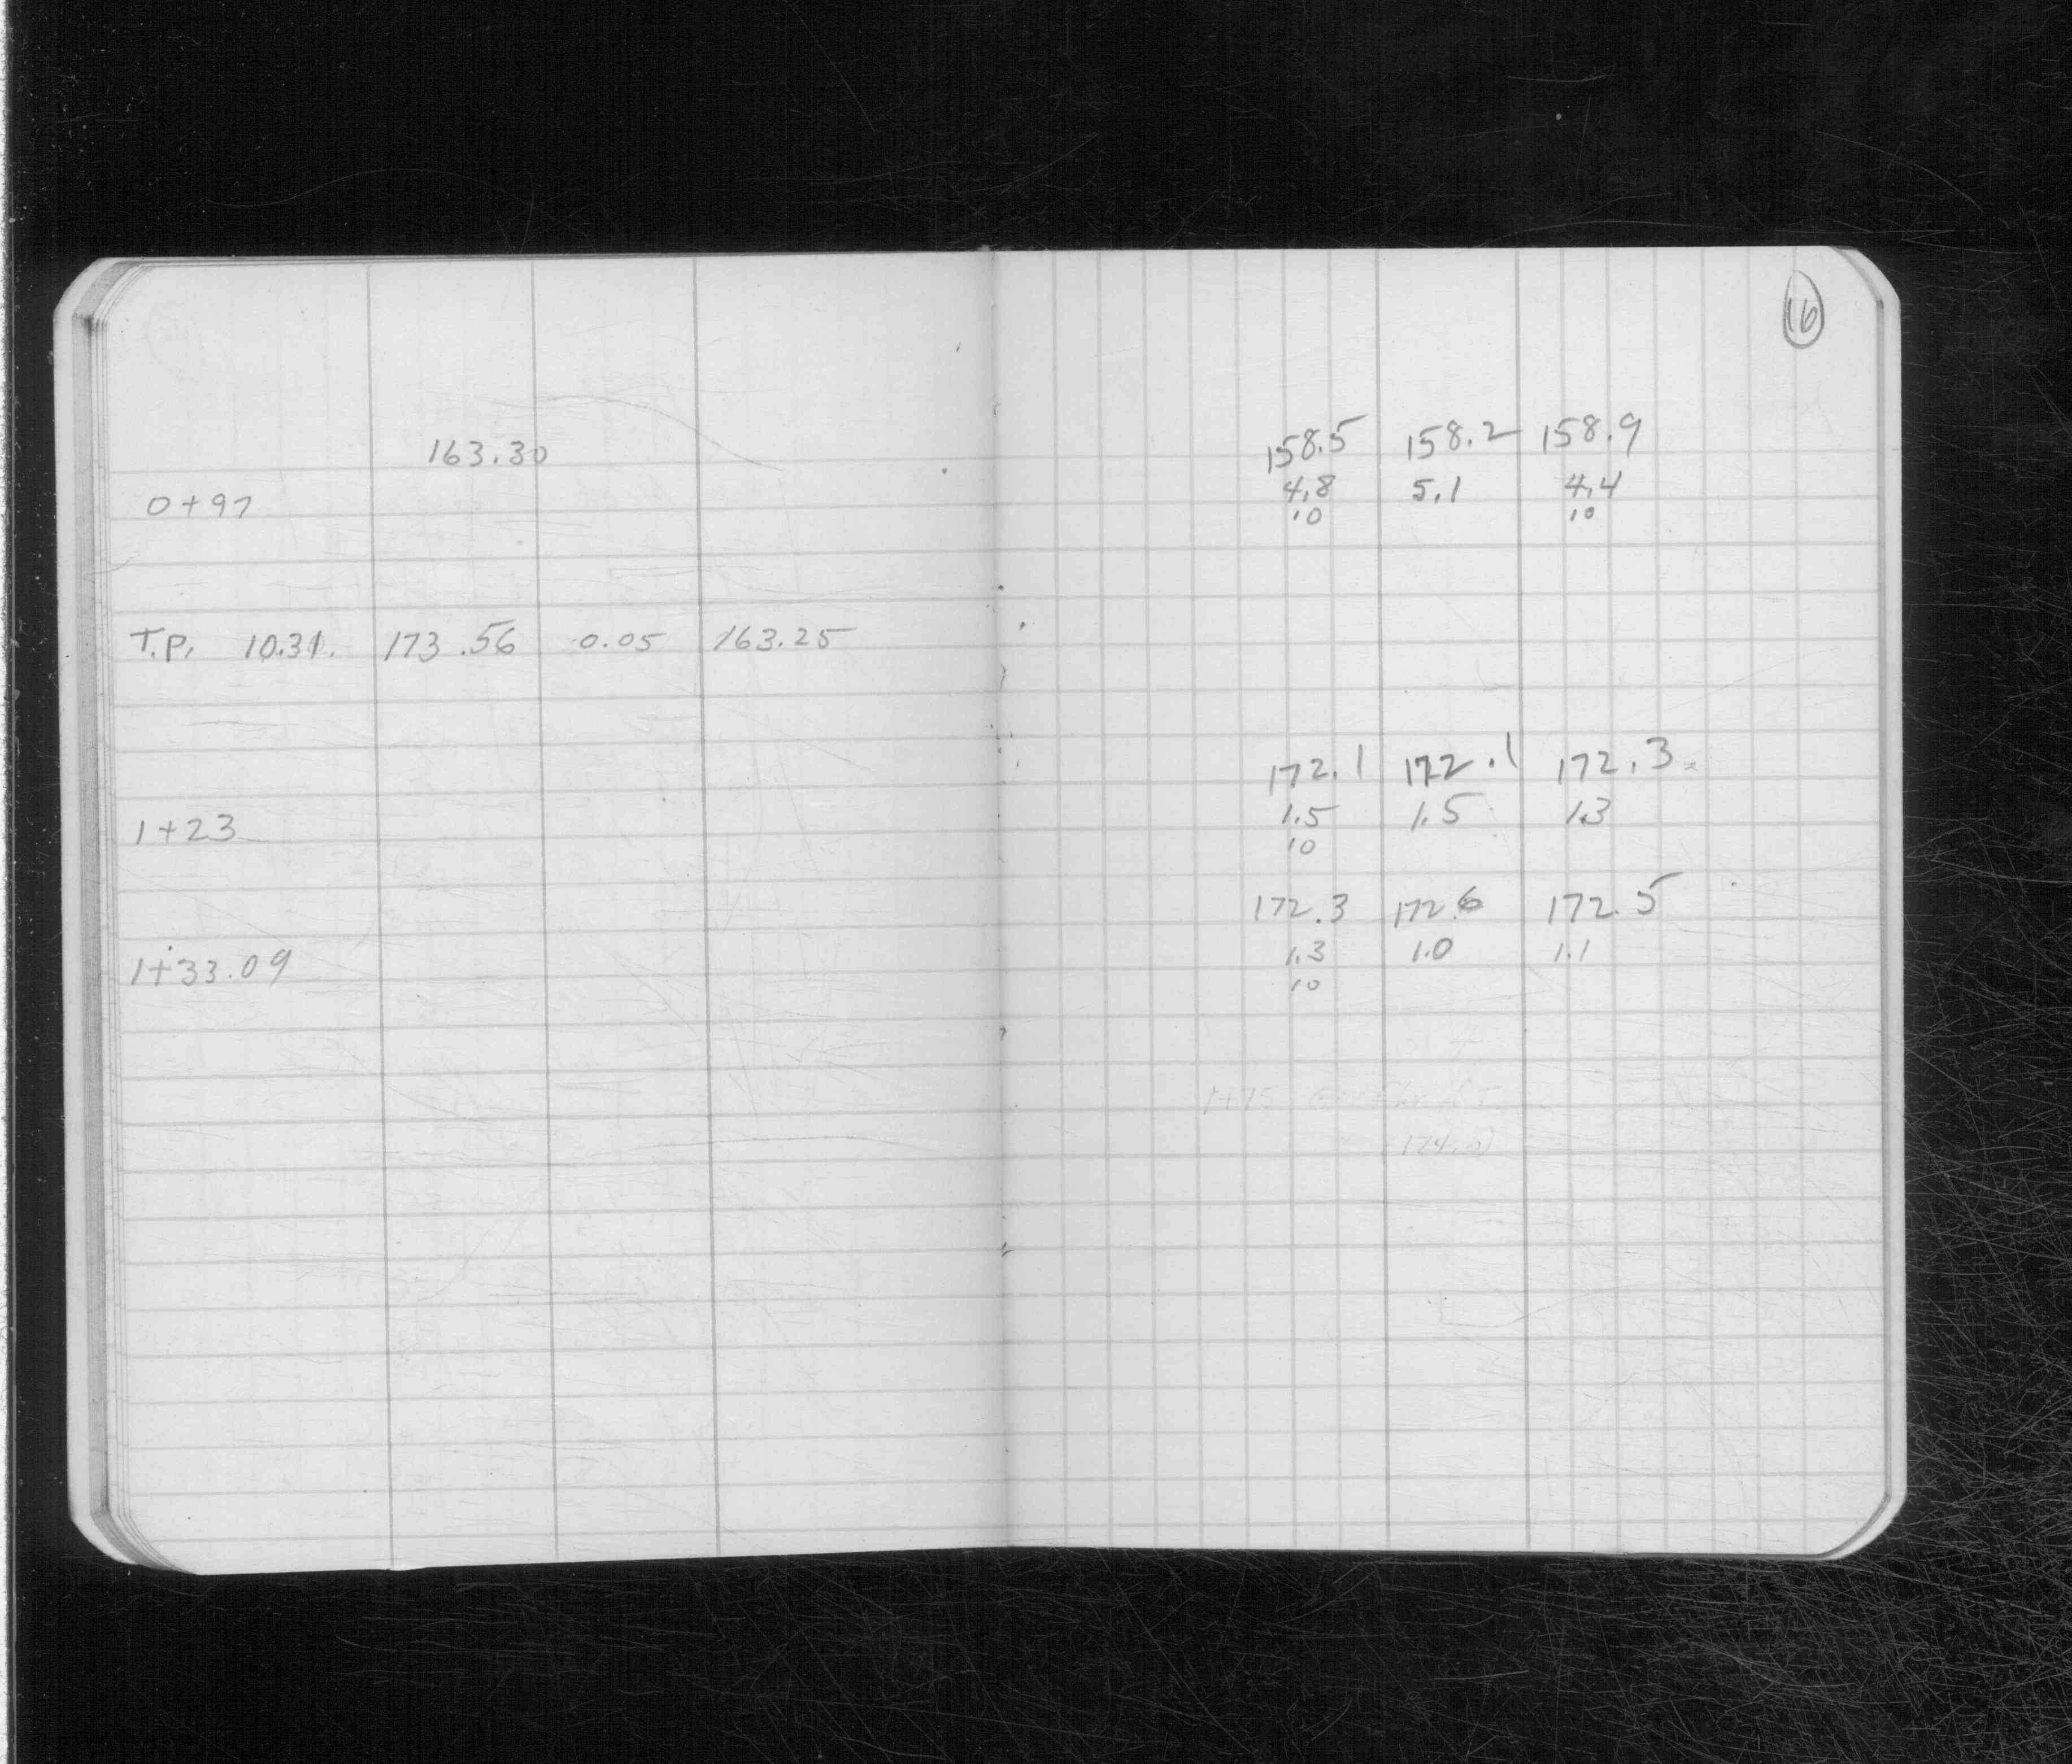 16
163.30
158.5 158.2 158.9
0+97
4.8 5.1 4.4
10 10
T.P. 10.31. 173.56 0.05 163.25
172.1 172.1 172.3
1+23
1.5 1.5 1.3
10
172.3 172.6 172.5
1+33.09
1.3 1.0 1.1
10
1+75
(174.0)